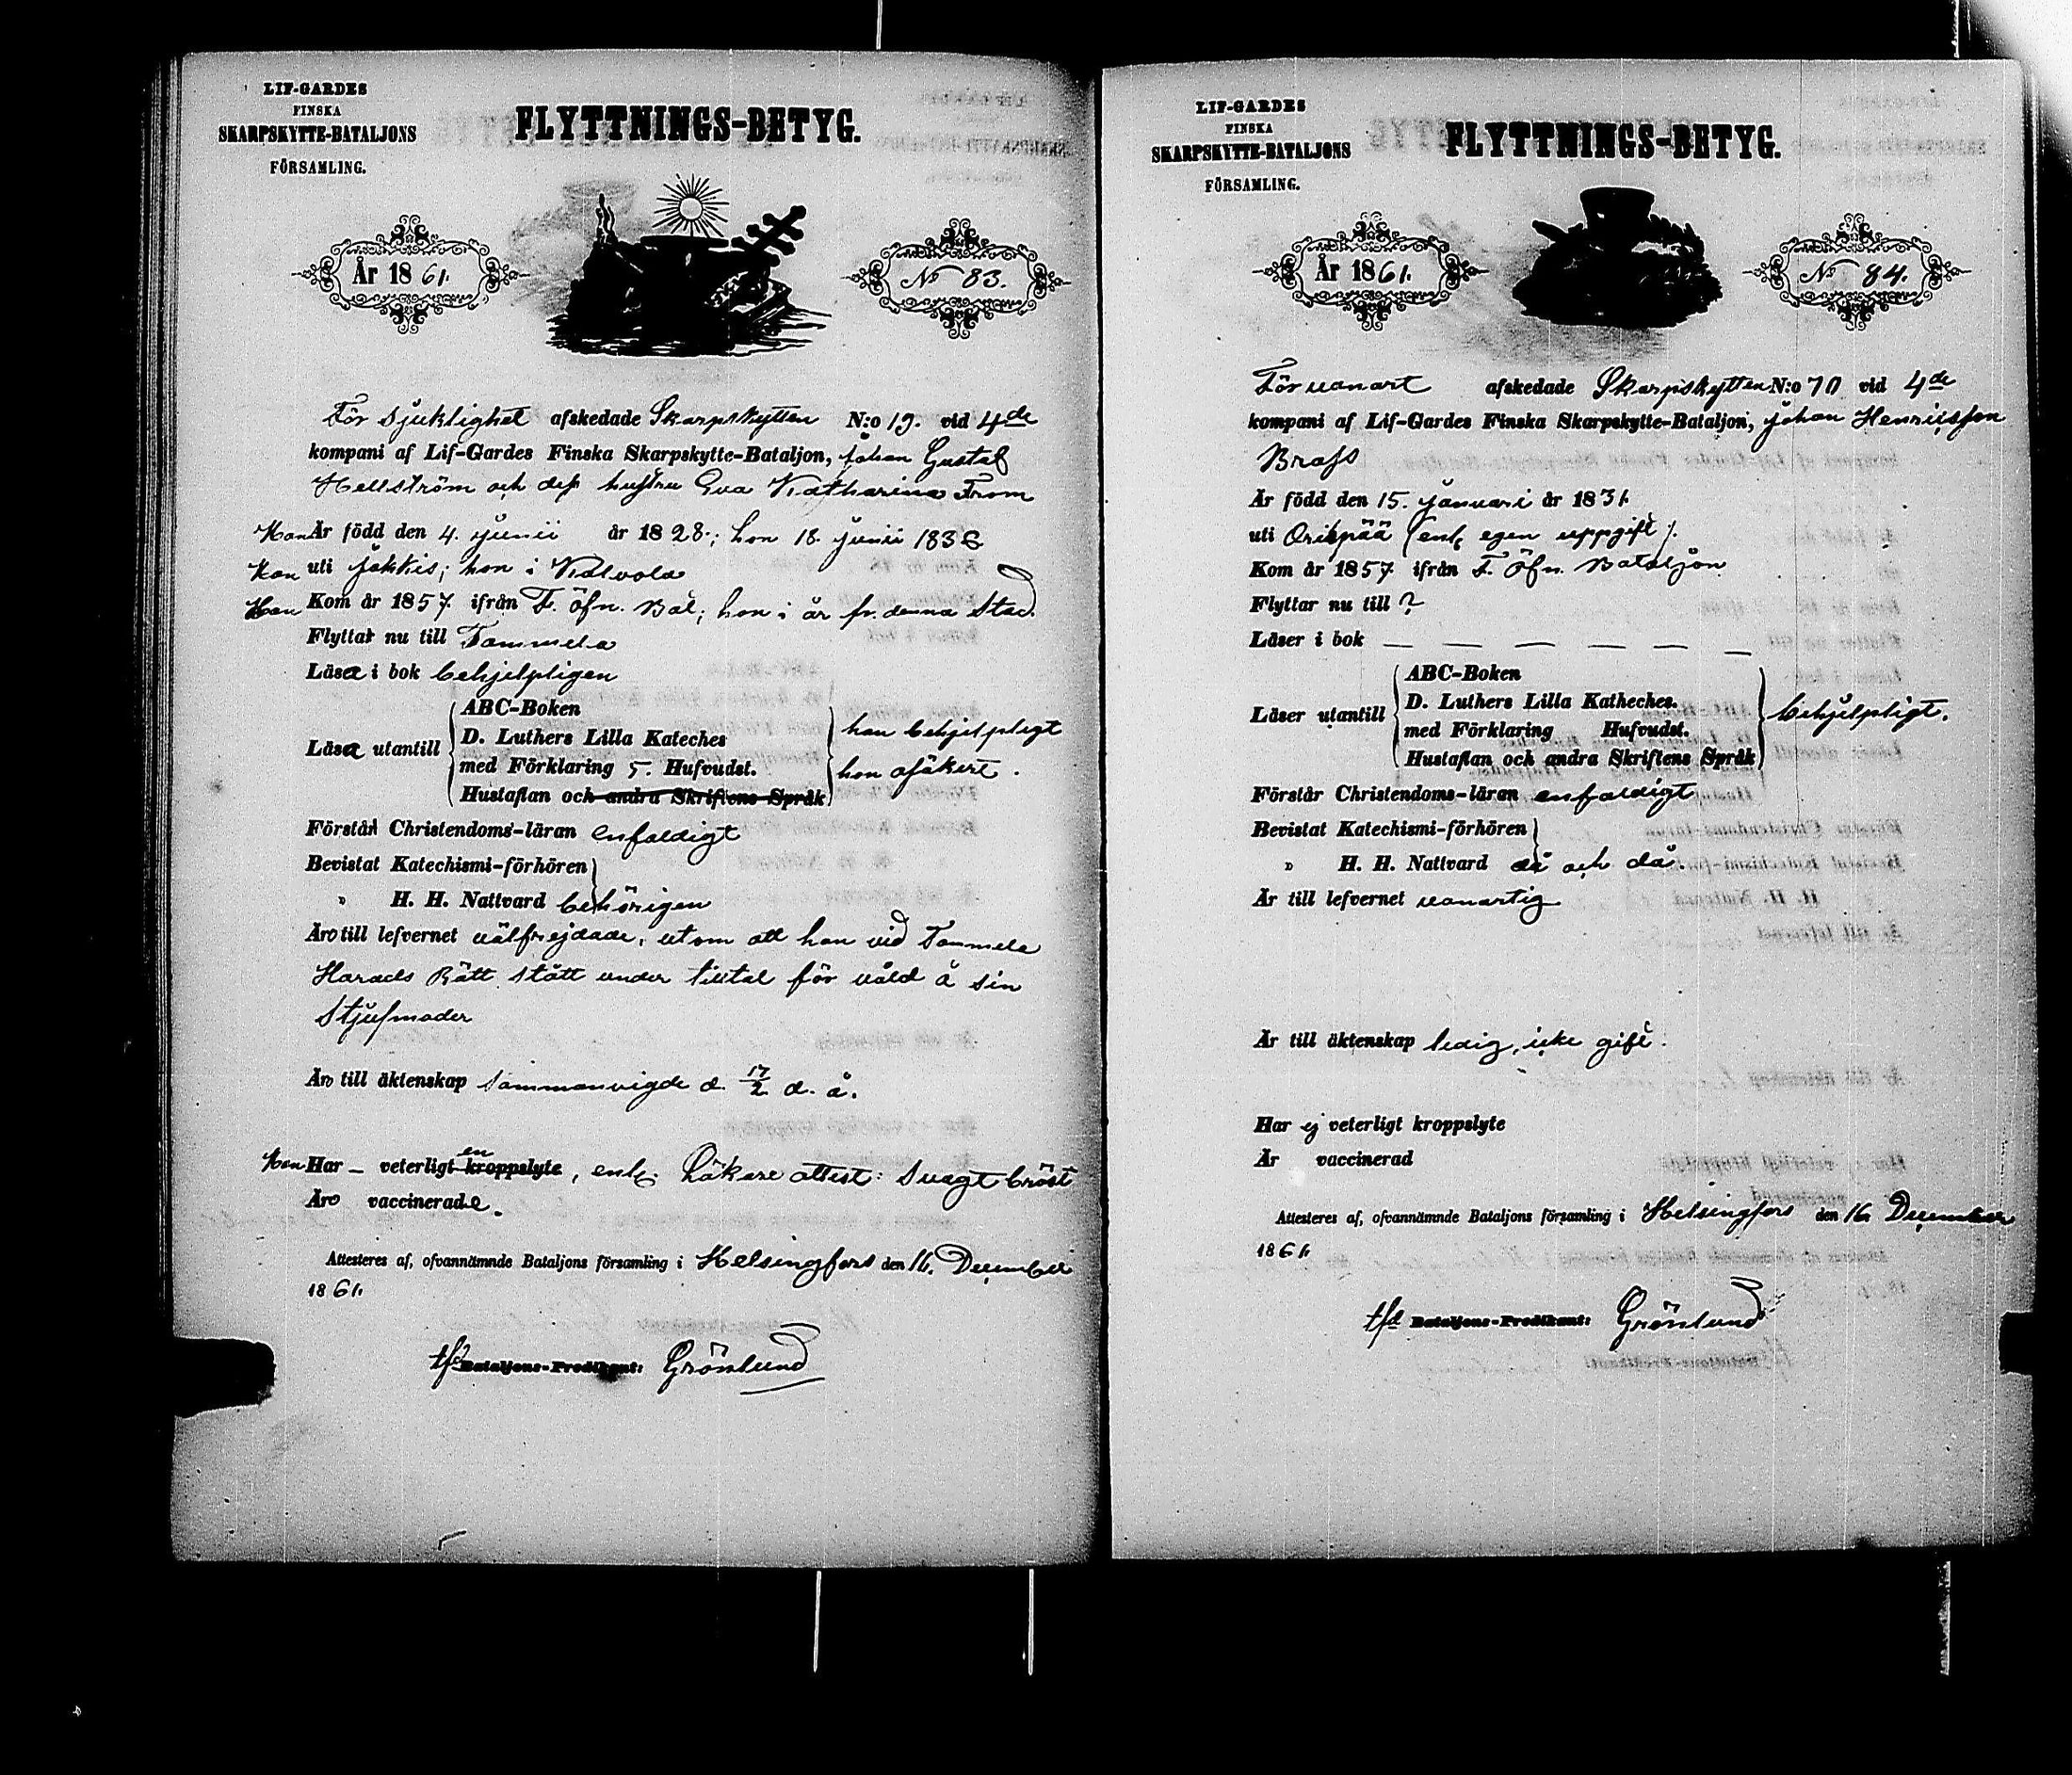 LIF-GARDES
FINSKA
SKARPSKYTTE-BATALJONS
FÖRSAMLING.
FLYTTNINGS-BETYG.
År 1861.
No 83.
För sjuklighet afskedade Skarpskytten N:o 19. vid 4de
kompani af Lif-Gardes Finska Skarpskytte-Bataljon, Johan Gustaf
Hellström och dess hustru Eva Katharina From
Han Är född den 4. Junii år 1828.; hon 18. Junii 183
han uti Jokkis; hon i Kalvola
Han Kom år 1857. ifrån F. Öfn. Bat.; hon i år fr. denna Stad.
Flytta nu till Tammela
Läsa i bok behjelpligen
Läsa utantill
ABC-Boken
D. Luthers Lilla Kateches
med Förklaring 5. Hufvudst.
Hustaflan och andra Skriftens Språk
han behjelpligt
hon osäkert.
Förstå Christendoms-läran enfaldigt
Bevistat Katechismi-förhören
" H. H. Nattvard behörigen
Äro till lefvernet välfrejdade, utom att han vid Tammela
Harads Rätt stått under tilltal för våld å sin
Stjufmoder
Äro till äktenskap sammanvigde d. 17/2 d. å.
Han Har – veterligt en kroppslyte, enl. Läkare attest: Svagt bröst
Äro vaccinerade.
Attesteres af, ofvannämnde Bataljons församling i Helsingfors den 16. December
1861.
tfd Bataljons-Predikant: Grönlund
LIF-GARDES
FINSKA
SKARPSKYTTE-BATALJONS
FÖRSAMLING.
FLYTTNINGS-BETYG.
År 1861.
No 84.
För vanart afskedade Skarpskytten N:o 70 vid 4de
kompani af Lif-Gardes Finska Skarpskytte-Bataljon, Johan Henriksson
Brass
Är född den 15. Januari år 1831.
uti Oripää (enl. egen uppgift).
Kom år 1857 ifrån F. Öfn. Bataljon
Flyttar nu till ?
Läser i bok — — — — — —
Läser utantill
ABC-Boken
D. Luthers Lilla Katheches.
med Förklaring Hufvudst.
Hustaflan och andra Skriftens Språk
behjelpligt.
Förstår Christendoms-läran enfaldigt
Bevistat Katechismi-förhören
" H. H. Nattvard då och då.
Är till lefvernet vanartig
Är till äktenskap ledig, icke gift.
Har ej veterligt kroppslyte
Är vaccinerad
Attesteres af, ofvannämnde Bataljons församling i Helsingfors den 16. December
1861.
tfd Bataljons-Predikant: Grönlund